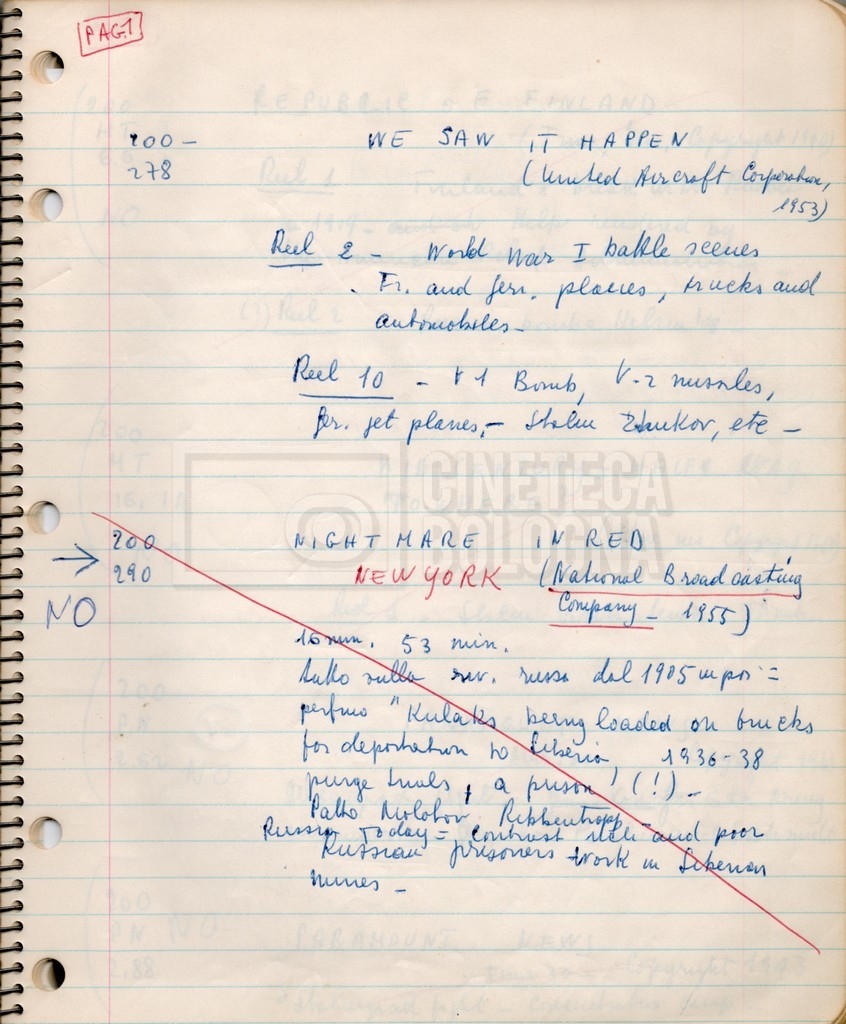 PAG.1
200 – WE SAW IT HAPPEN
278 (United Aircraft Corporation,
1953)
Reel 2 – World War I battle scenes
. Fr. and Ger. planes, trucks and
automobiles –
Reel 10 – V 1 Bomb, V-2 missiles,
Ger. jet planes, – Stalin Zhukov, etc –
CINETECA
BOLOGNA
→ 200 NIGHTMARE IN RED
290 NEW YORK (National Broadcasting
NO Company – 1955)
16 mm. 53 min.
tutto sulla riv. russa dal 1905 in poi =
perfino "Kulaks being loaded on trucks
for deportation to Siberia, 1936-38
purge trials, a prison" (!) –
Patto Molotov Ribbentropp –
Russia Today = contrast rich and poor
Russian prisoners work in Siberian
mines –